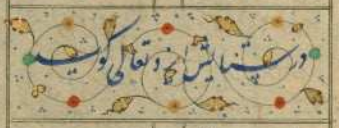 در ستایش ایزد تعالی گوید